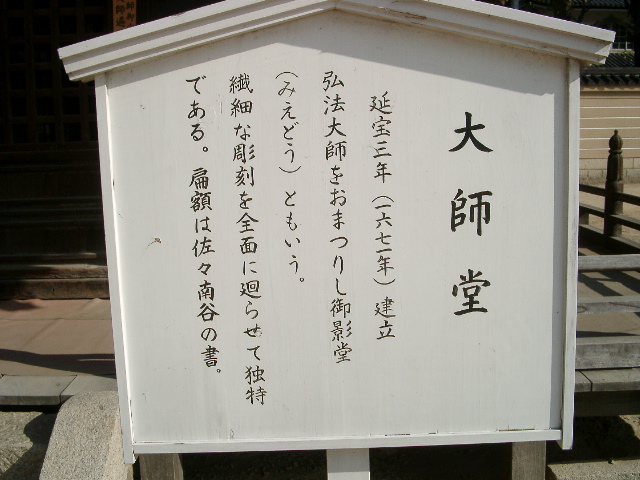 大師堂
延宝三年（一六七一年）建立
弘法大師をおまつりし御影堂
（みえどう）ともいう。
繊細な彫刻を全面に廻らせて独特
である。扁額は佐々南谷の書。